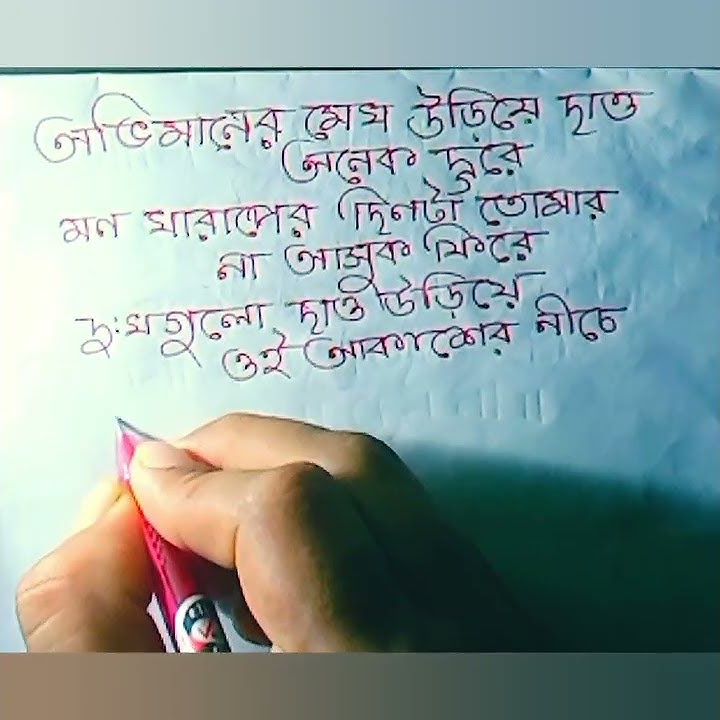 অভিমানের মেঘ উড়িয়ে দাও
অনেক দূরে
মন খারাপের দিনটা তোমার
না আসুক ফিরে
দুঃখগুলো দাও উড়িয়ে
ওই আকাশের নীচে